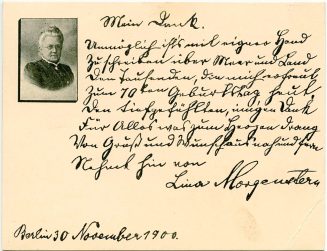 Mein Dank.
Unmöglich ist's mit eigner Hand
Zu schreiben über Meer und Land
Den Tausenden, die mich erfreut
Zum 70ten Geburtstag heut
Den tiefgefühlten, innigen Dank
Für Alles was zum Herzen drang
Von Gruß und Wunsch aus nah und fern
Nehmt hin von
Lina Morgenstern
Berlin 30 November 1900.